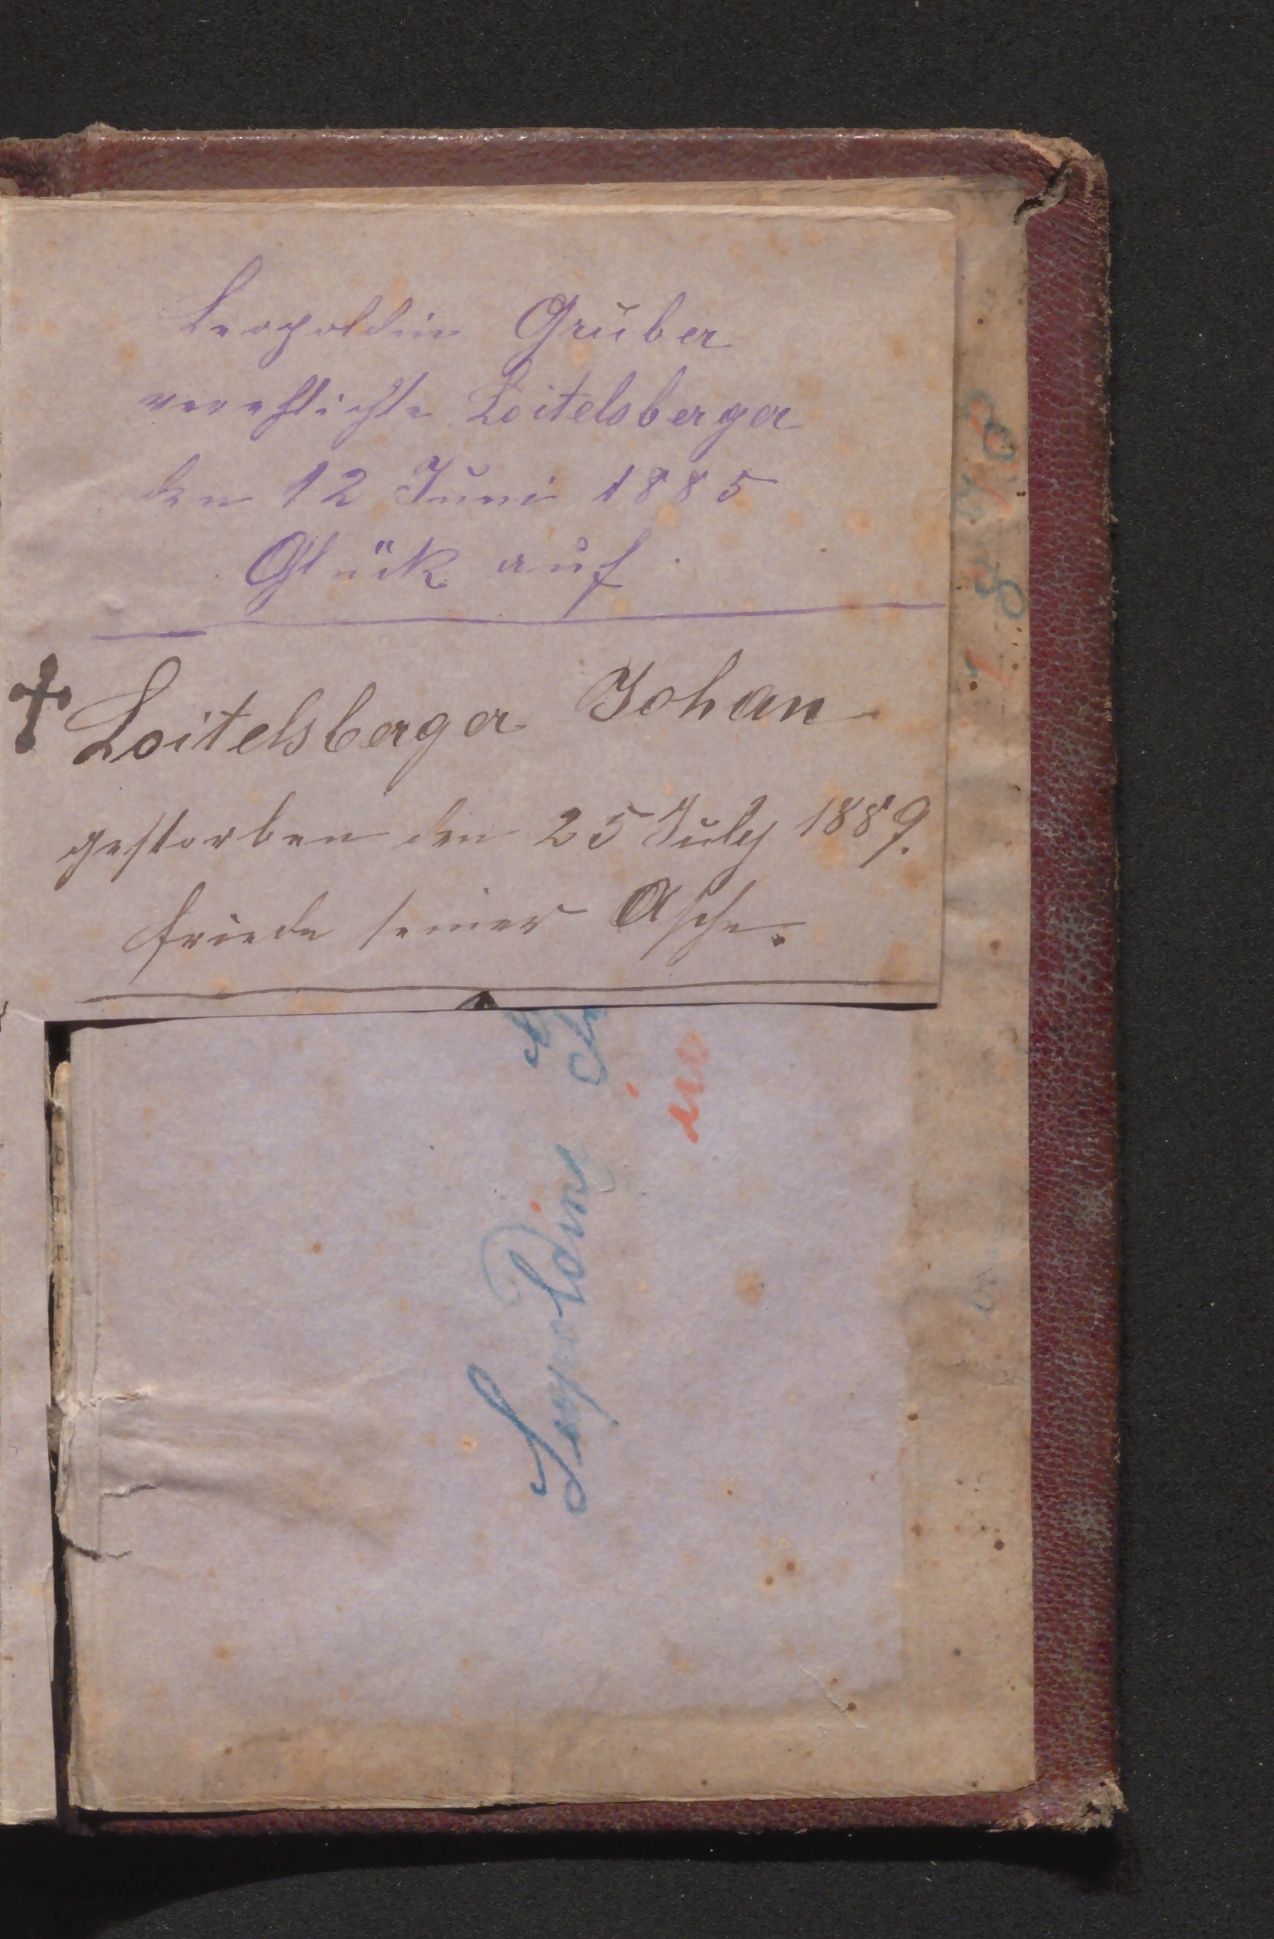 Leopoldin Gruber
verehlichte Loitelsberger
den 12 Juni 1885
Glück auf
Loitelsberger Johan
gestorben den 25 July 1889.
Friede seiner Asche.
Leopoldin